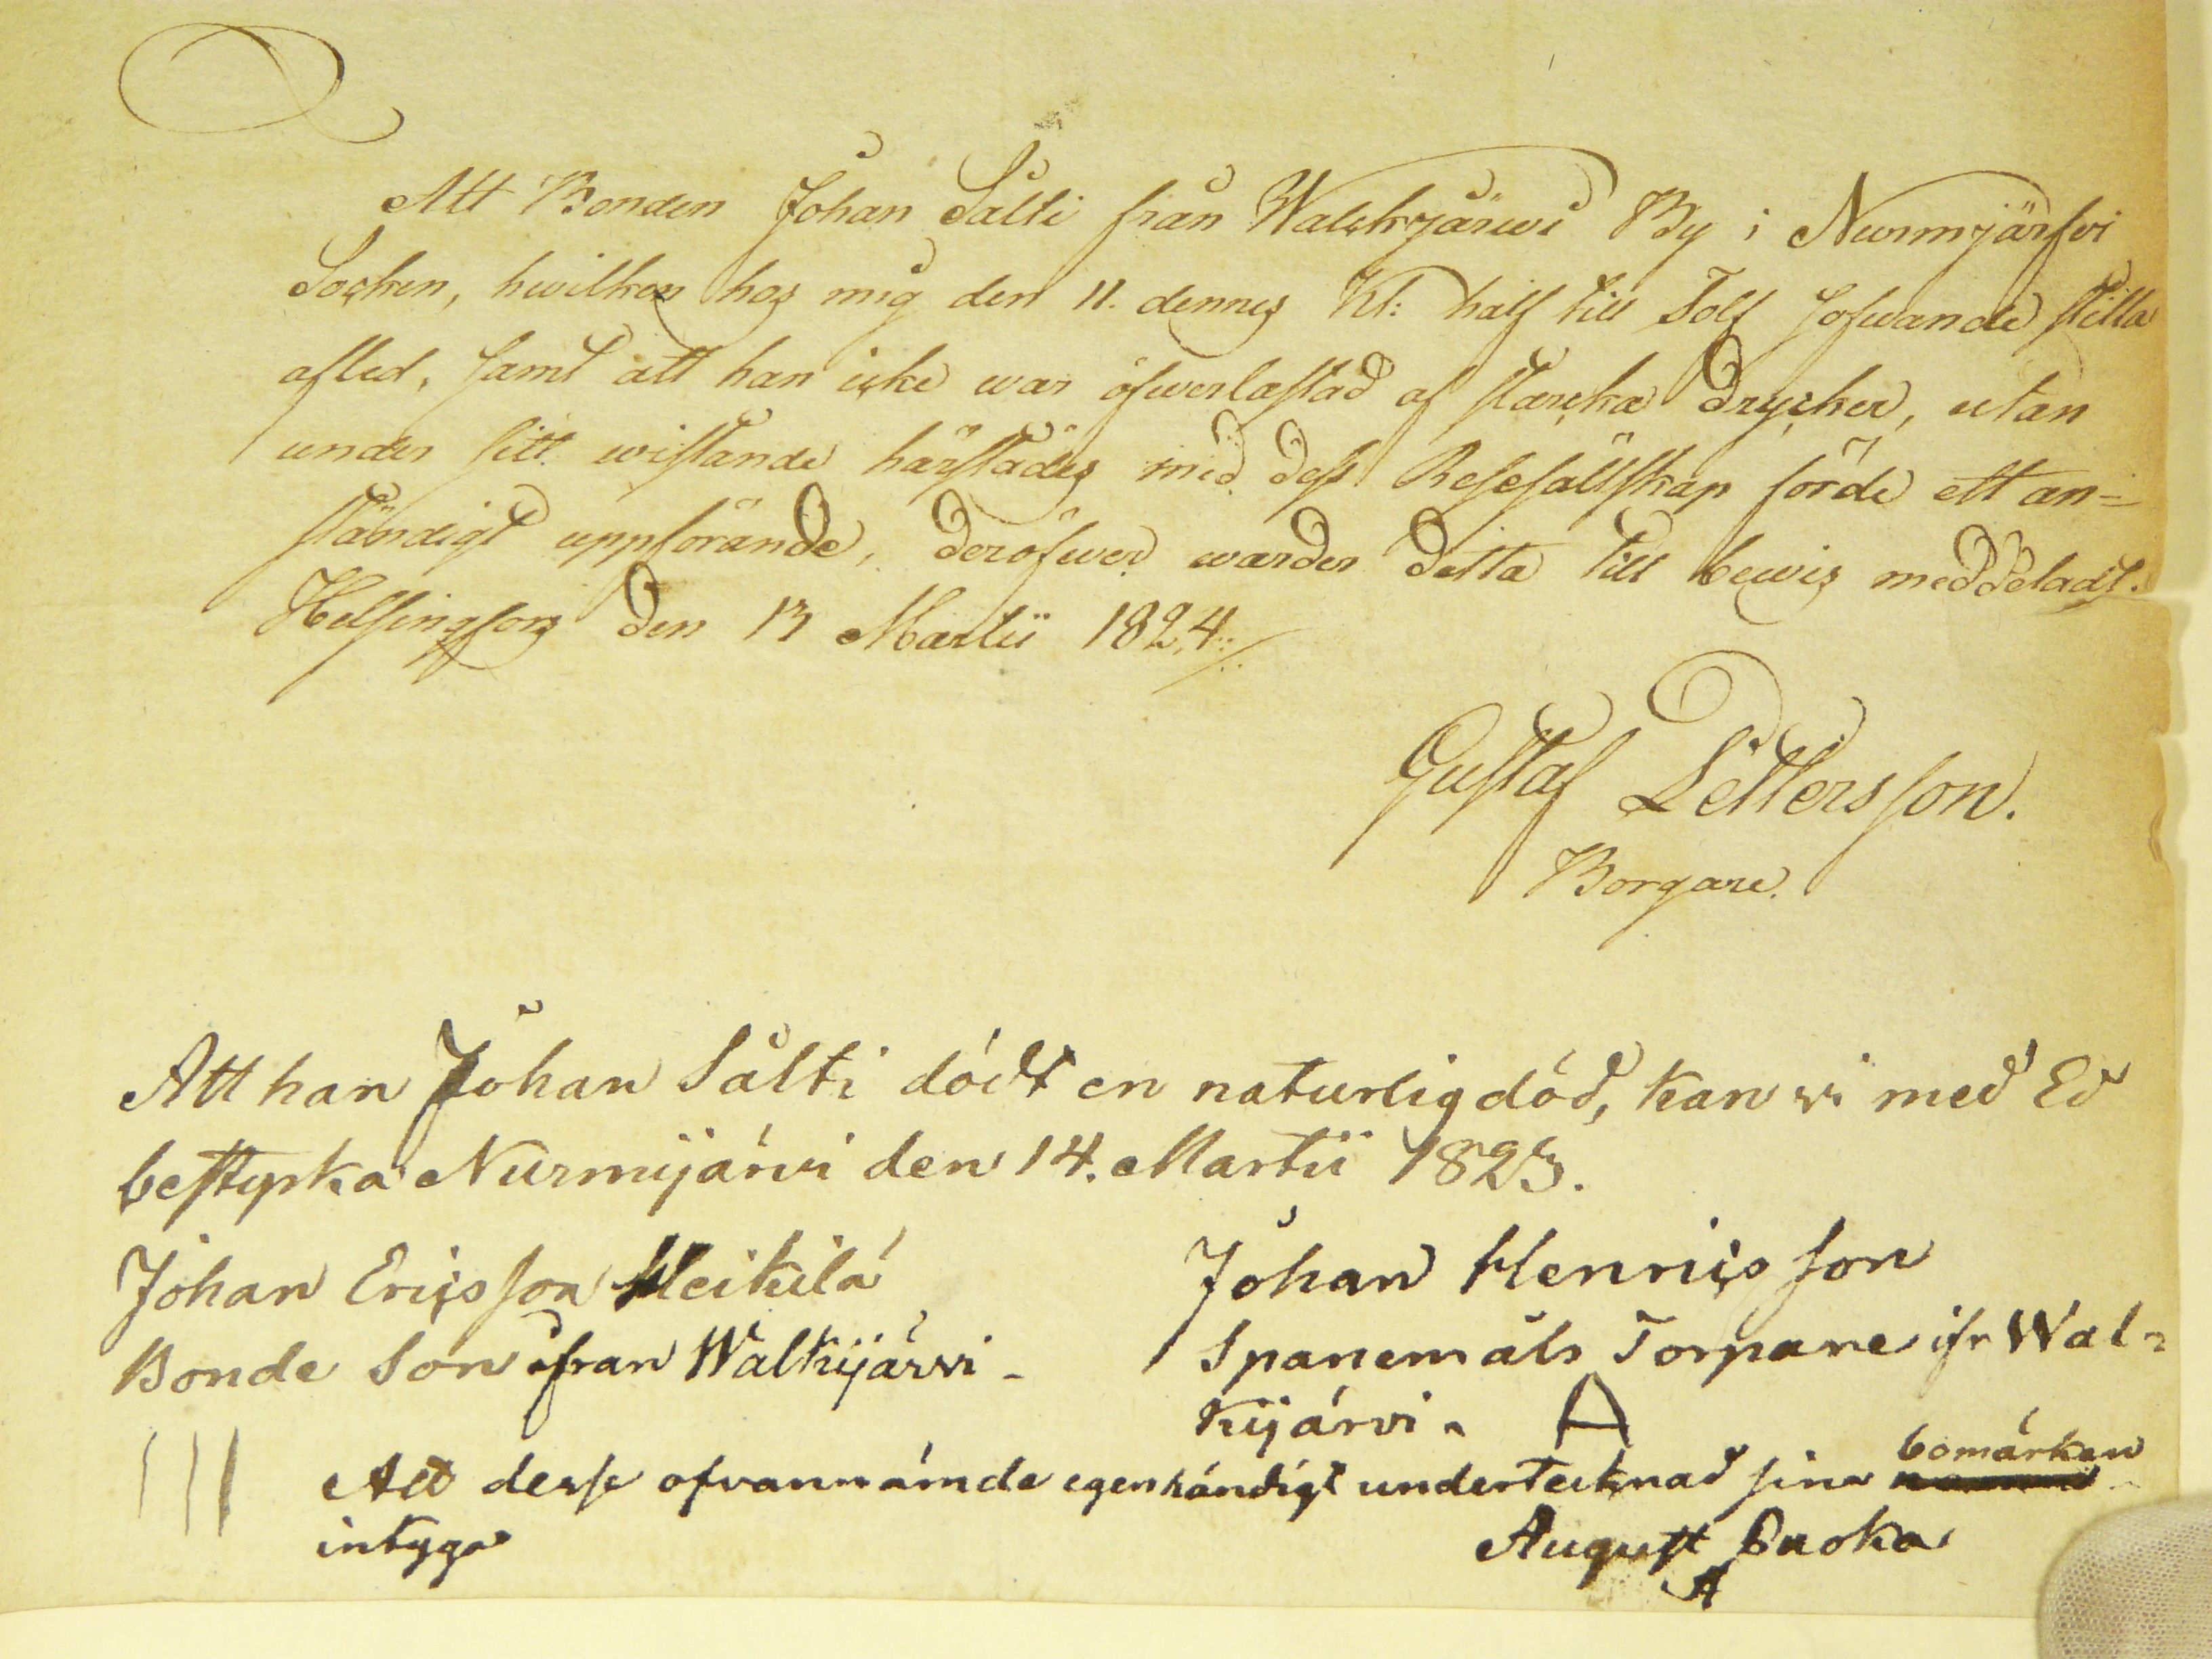 Att Bonden Johan Sälti från Walckjärwi By i Nurmjärfvi
Socken, hwilken hos mig den 11. dennes Kl: half till Tolf sofwande stilla
afled, samt att han icke war öfwerlastad af starcka drycker, utan
under sitt wistande härstädes med dess Resesällskap förde ett an=
ständigt uppförande, deröfwer warder detta till bewis meddeladt.
Helsingfors den 13 Martii 1824./.
Gustaf Pettersson.
Borgare.
Att han Johan Sälti dödt en naturlig död, kan vi med Ed
bestyrka Nurmijärvi den 14. Martii 1823.
Johan Ericsson Heikilä
Johan Henricsson
Bonde Son ifran Walkijärvi -
Torpare ifr Wal=
kijärvi. A
III
Att desse ofvannämde egenhändigt underteiknad sina bomärken
intyga
August